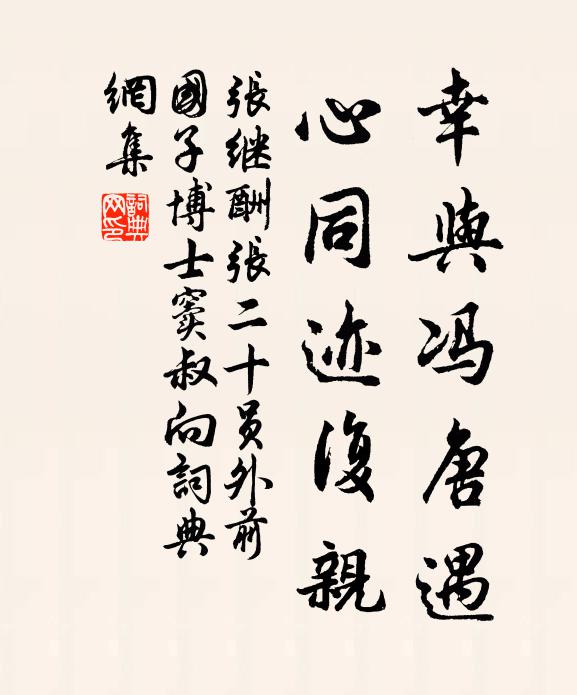 幸與冯唐遇
心同迹復親
張继酬張二十員外前
國子博士竇叔向詞典
網集
詞典网印